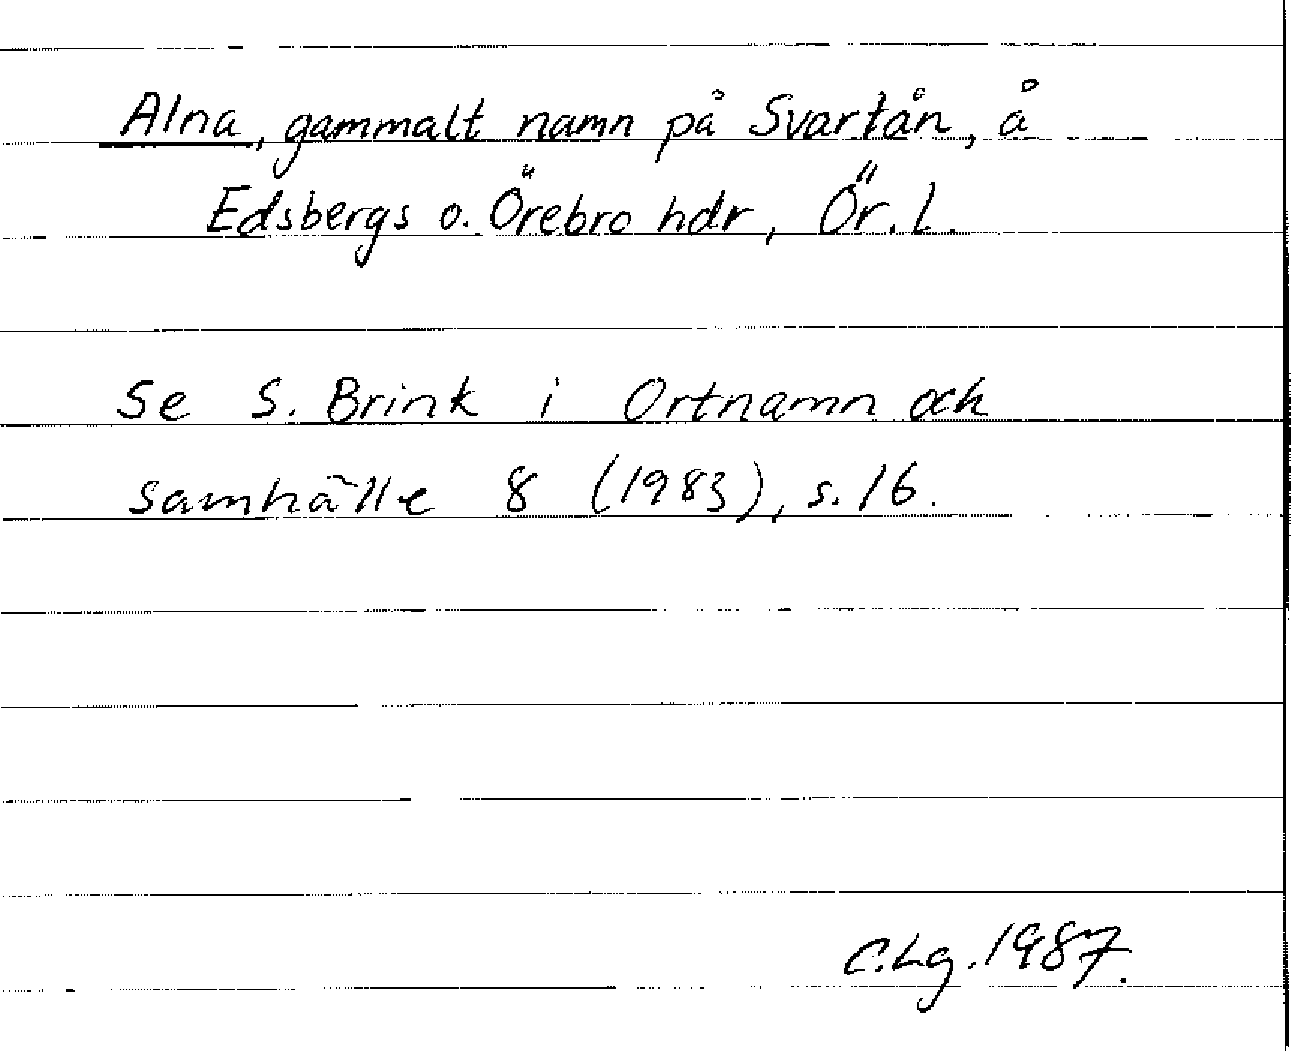 Alna, gammalt namn på Svartån, å
Edsbergs o. Örebro hdr, Ör. l.
Se S. Brink i Ortnamn och
samhälle 8 (1983), s. 16.
C.Lg. 1987.